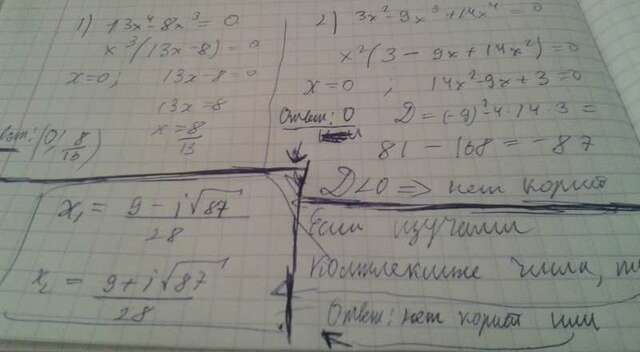 1) 13x⁴-8x³=0
x³(13x-8)=0
x=0; 13x-8=0
13x=8
x=8/13
вет: (0; 8/13)
2) 3x²-9x³+14x⁴=0
x²(3-9x+14x²)=0
x=0 ; 14x²-9x+3=0
Ответ: 0 D=(-9)²-4·14·3=
81-168=-87
D<0 => нет корней
x₁ = (9-i√87)/28
x₂ = (9+i√87)/28
Если изучали
комплексные числа, т
Ответ: нет корней или